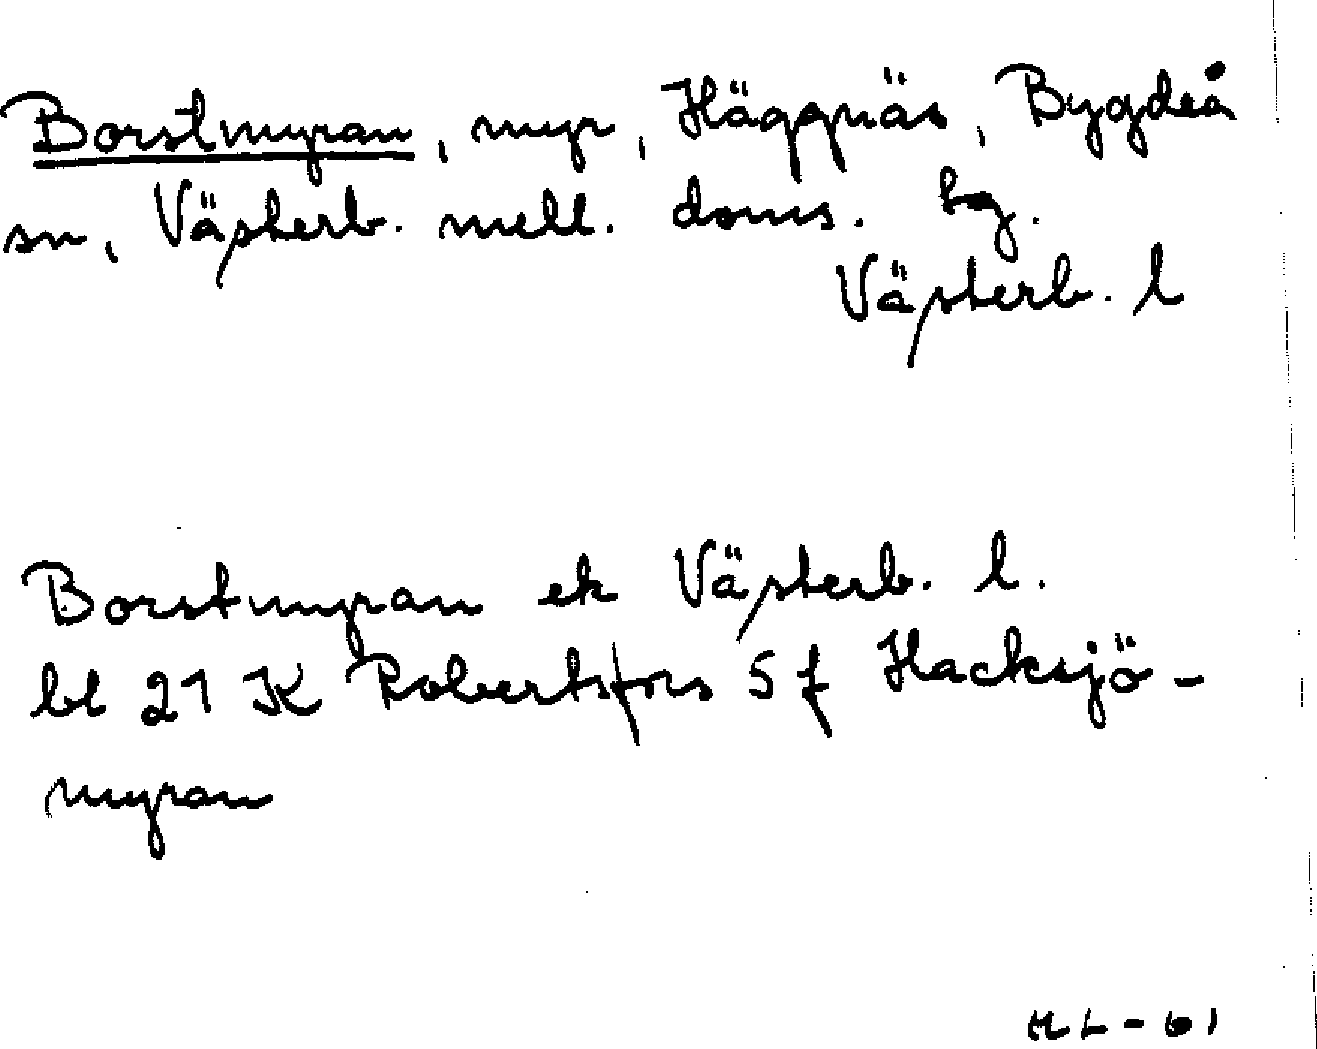 Borstmyran, myr, Häggnäs, Bygdeå
sn, Västerb. mell. doms. tg.
Västerb. l
Borstmyran ek Västerb. l.
bl 21 K Robertsfors 5 f Hacksjö-
myran